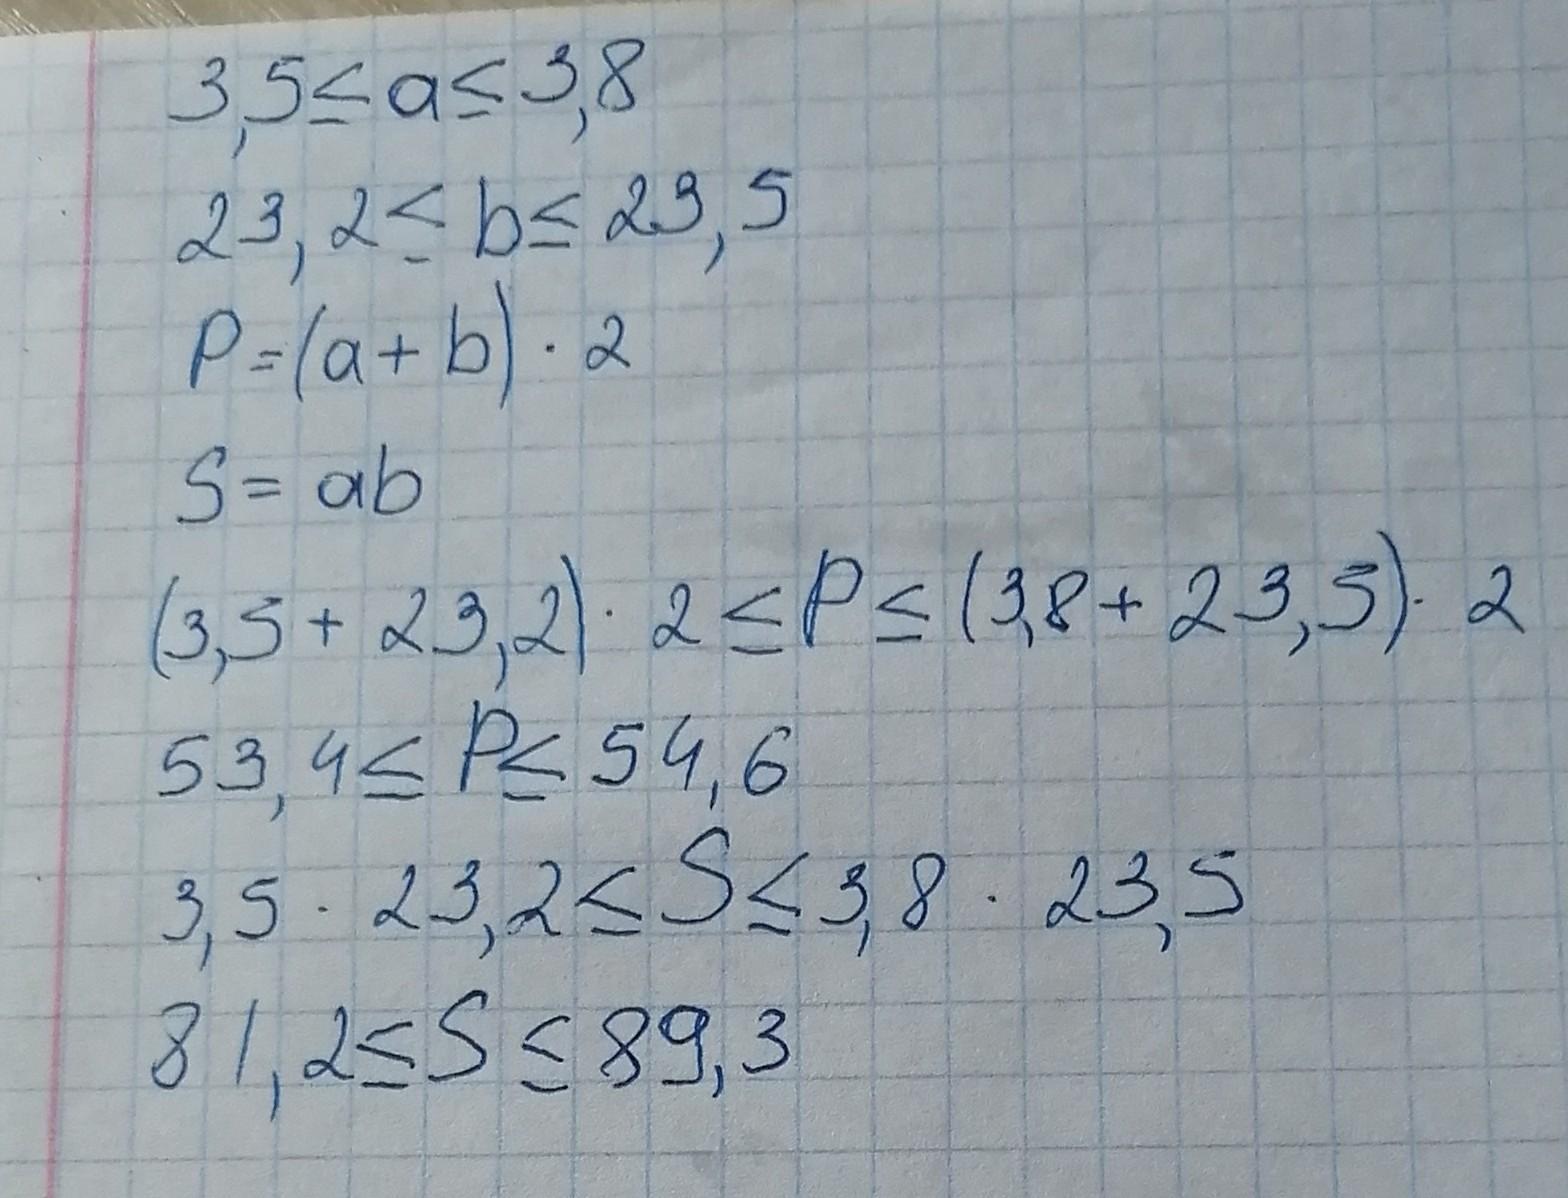 3,5≤a≤3,8
23,2≤b≤23,5
P=(a+b)·2
S=ab
(3,5+23,2)·2≤P≤(3,8+23,5)·2
53,4≤P≤54,6
3,5·23,2≤S≤3,8·23,5
81,2≤S≤89,3